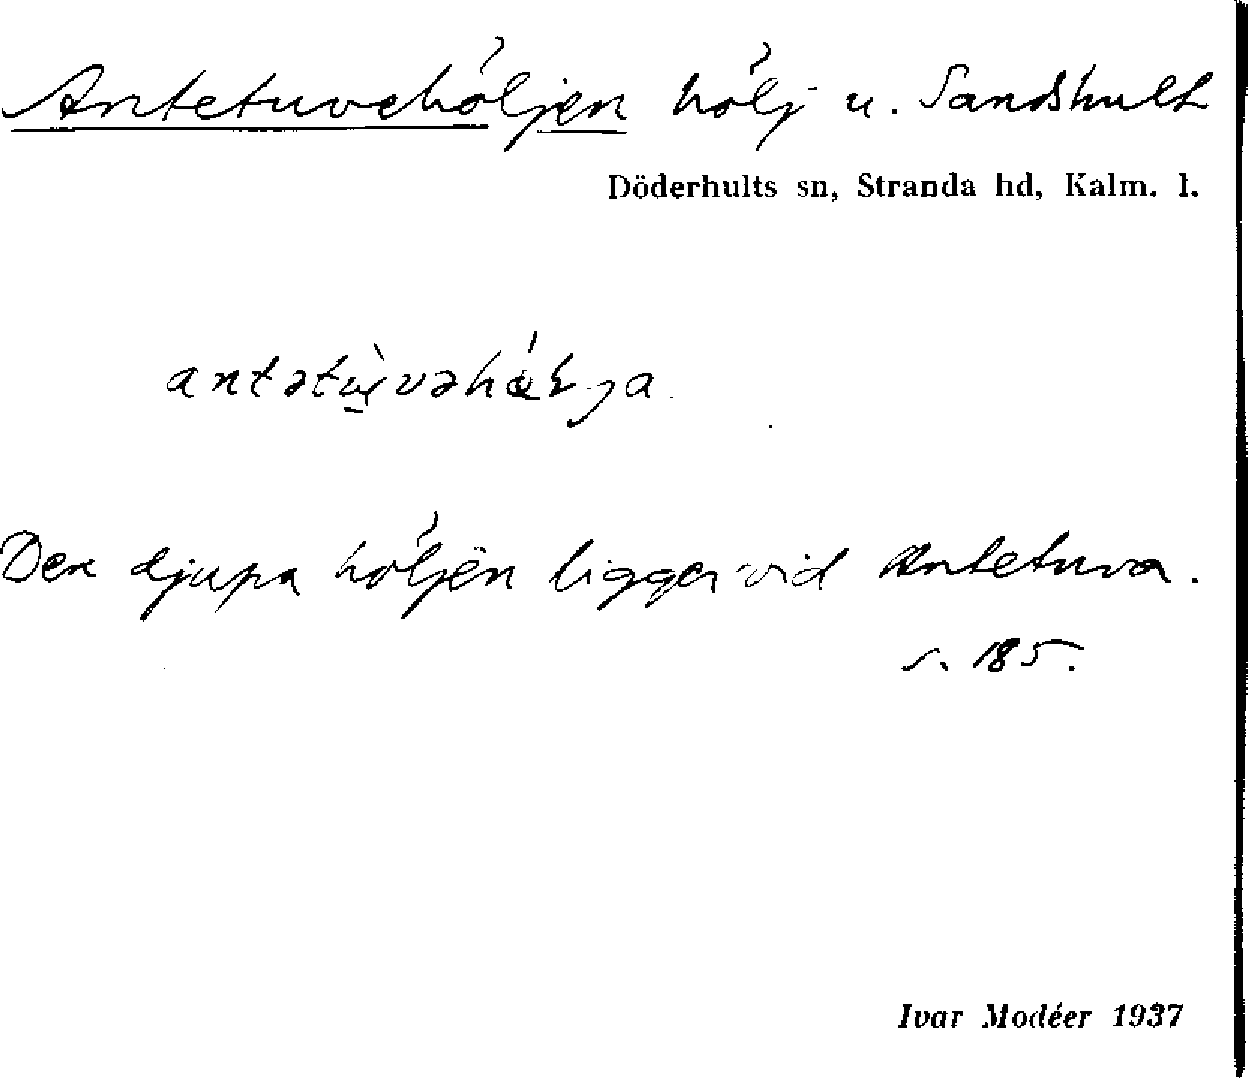 Antetuvehöljen hölj u. Sandshult
Döderhults sn, Stranda hd, Kalm. l.
Den djupa höljen ligger vid Antetuva.
s. 185.
Ivar Modéer 1937